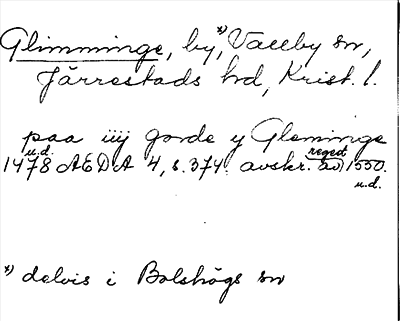 Glimminge, by,*) Vallby sn,
Järrestads hd, Krist. l.
paa iiij gorde y Gleminge
u.d. regest
1478 AEDA 4, s. 374. avskr. av) 1550.
u.d.
*) delvis i Bolshögs sn